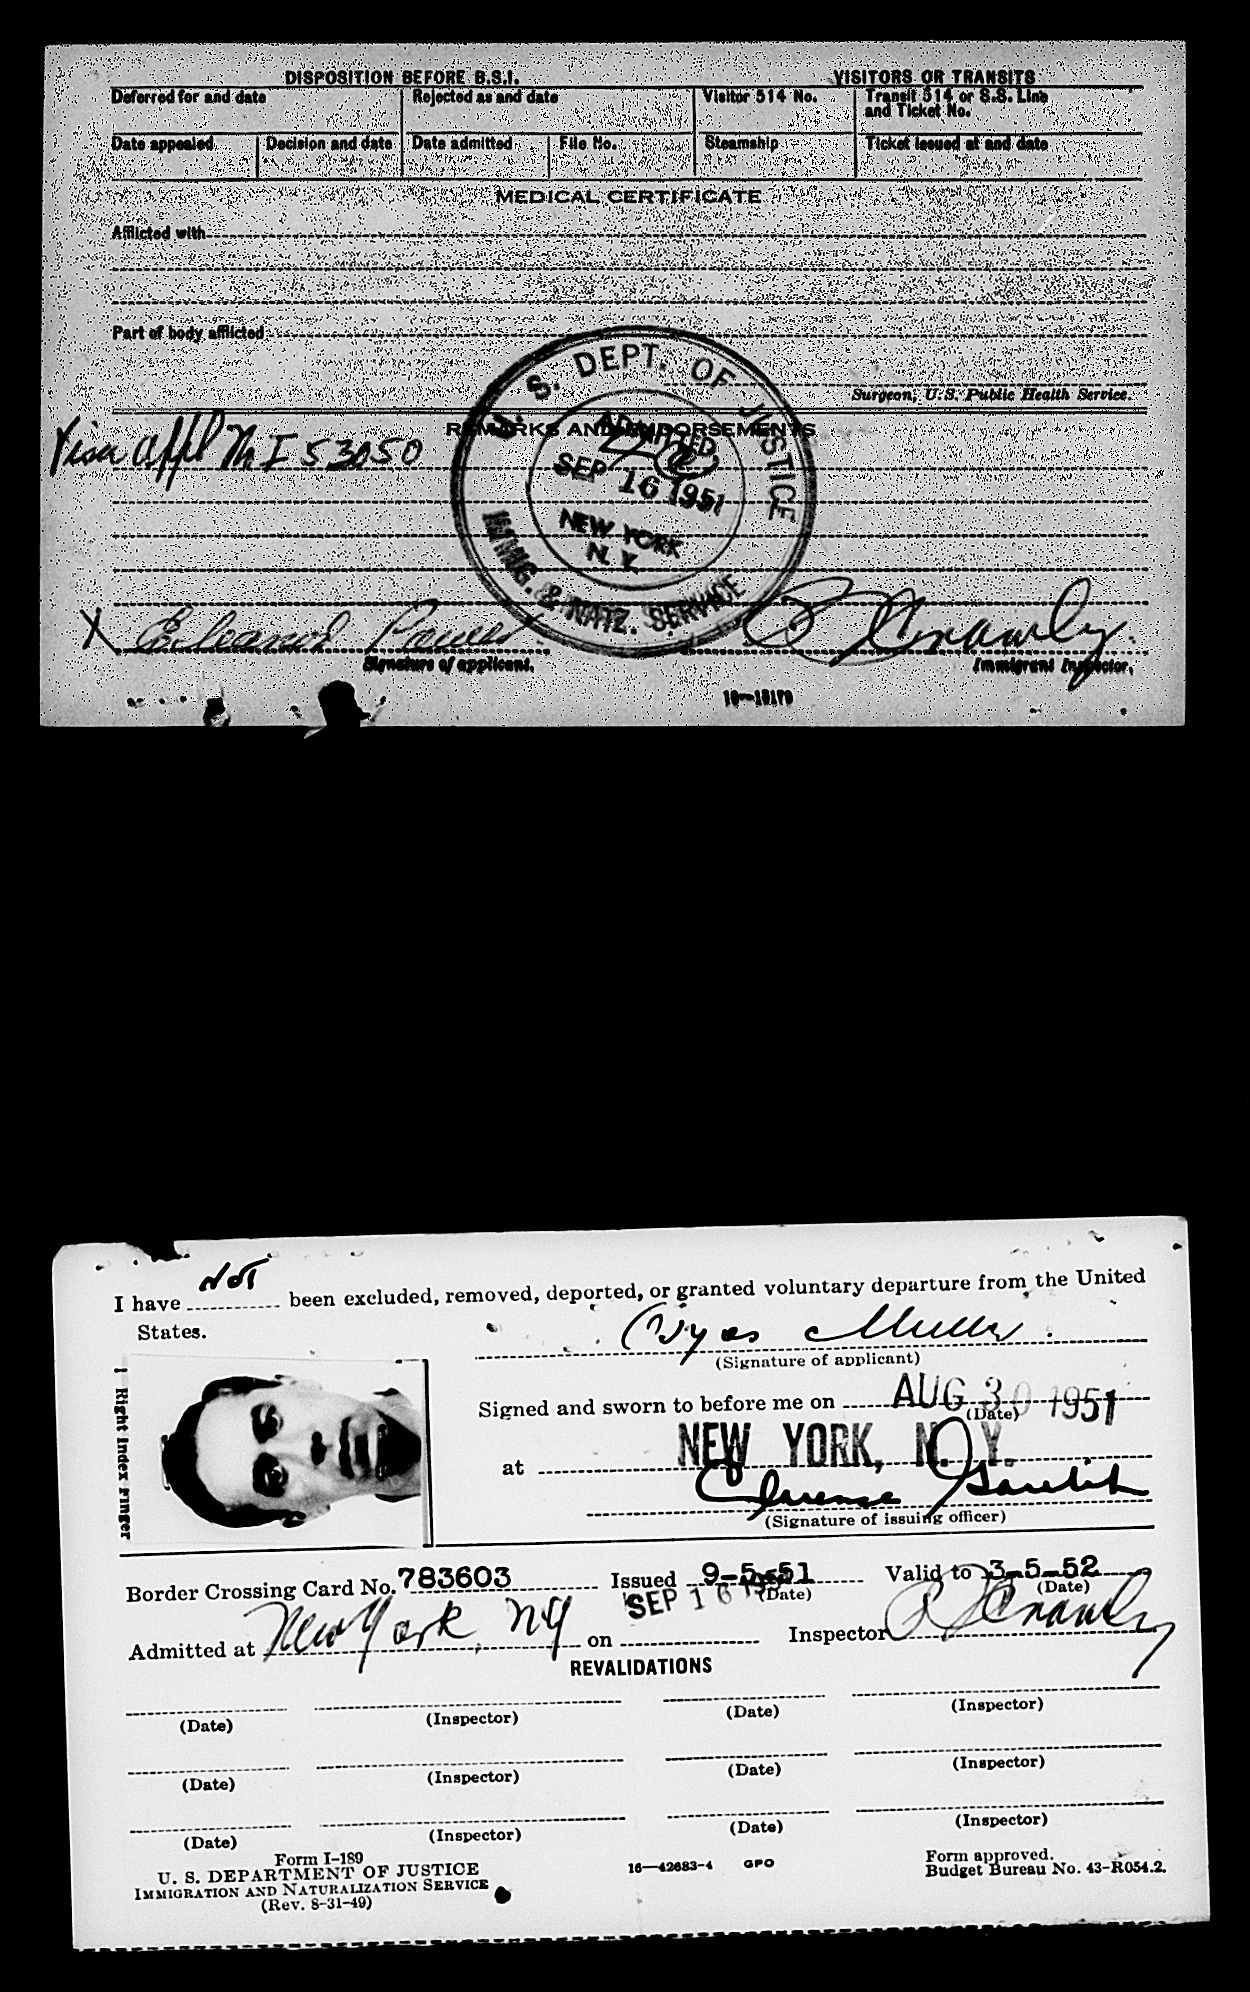 DISPOSITION BEFORE B.S.I. VISITORS OR TRANSITS
Deferred for and date Rejected as and date Visitor 514 No. Transit 514 or S.S. Line
and Ticket No.
Date appealed Decision and date Date admitted File No. Steamship Ticket issued at and date
MEDICAL CERTIFICATE
Afflicted with
Part of body afflicted
Surgeon, U.S. Public Health Service.
REMARKS AND ENDORSEMENTS
Visa appl I 53050
U. S. DEPT. OF JUSTICE
ADMITTED
SEP 16 1951
NEW YORK
N. Y.
IMMIG. & NATZ. SERVICE
X Eleanor
Signature of applicant. Immigrant Inspector.
16—13179
I have NOT been excluded, removed, deported, or granted voluntary departure from the United
States.
(Signature of applicant)
Right Index Finger
Signed and sworn to before me on AUG 30 1951
(Date)
at NEW YORK, N. Y.
Clarence
(Signature of issuing officer)
Border Crossing Card No. 783603 Issued 9-5-51 Valid to 3-5-52
(Date) (Date)
Admitted at New York, NY on SEP 16 1951 Inspector
REVALIDATIONS
(Date) (Inspector) (Date) (Inspector)
(Date) (Inspector) (Date) (Inspector)
(Date) (Inspector) (Date) (Inspector)
Form I-189
U. S. DEPARTMENT OF JUSTICE
IMMIGRATION AND NATURALIZATION SERVICE
(Rev. 8-31-49)
16—42683-4 GPO
Form approved.
Budget Bureau No. 43-R054.2.